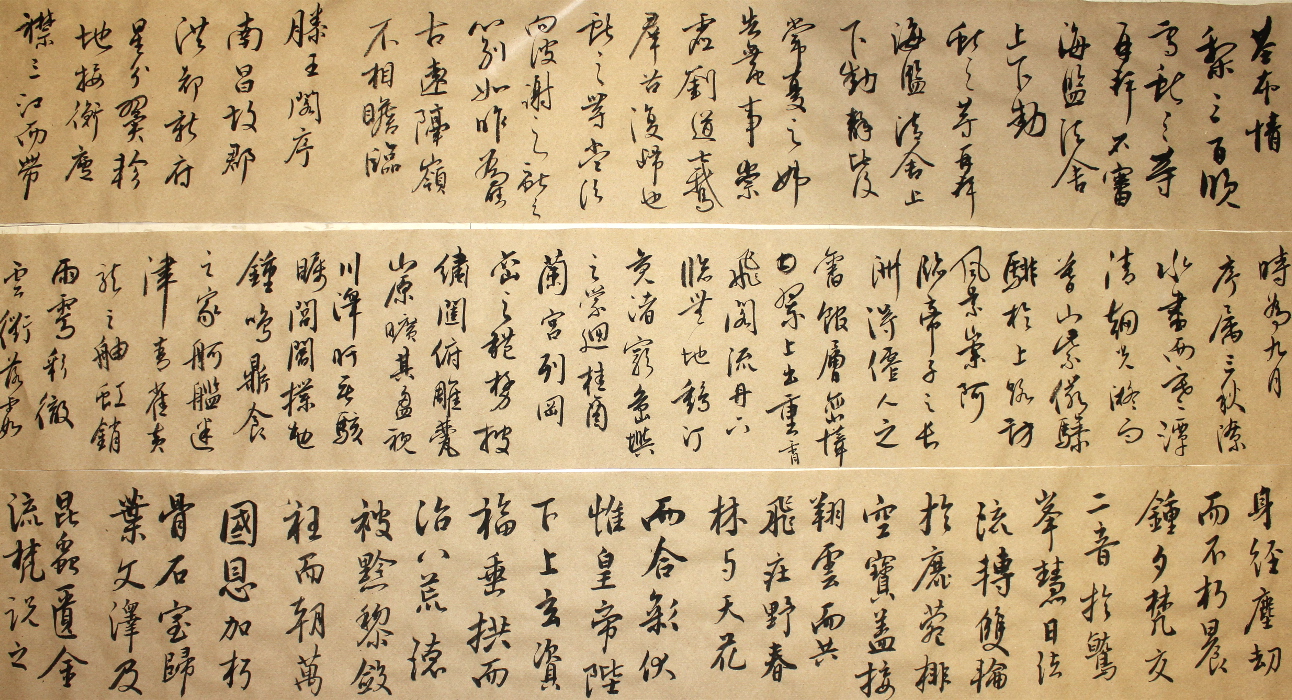 荅布情
梨三百晚
雪獻之等
再拜不審
海鹽諸舍
上下動
獻之等再拜
海鹽諸舍上
下動靜比復
常憂之姊
告無事崇
虛劉道士鵝
群並復歸也
獻之等當須
向彼謝之獻之
別如昨
古遠隔嶺
不相瞻臨
滕王閣序
南昌故郡
洪都新府
星分翼軫
地接衡廬
襟三江而帶
時為九月
序屬三秋潦
水盡而寒潭
清烟光凝而
暮山紫儼驂
騑於上路訪
風景崇阿
臨帝子之長
洲得僊人之
舊館層巒聳
翠上出重霄
飛閣流丹下
臨無地鶴汀
鳧渚窮島嶼
之縈迴桂殿
蘭宮列岡
巒之體勢披
繡闥俯雕甍
山原曠其盈視
川澤盱其駭
矚閭閻撲地
鐘鳴鼎食
之家舸艦迷
津青雀黃
龍之舳虹銷
雨霽彩徹
雲衢落霞
身經塵劫
而不朽晨
鐘夕梵交
二音於鷲
峯慧日法
流轉雙輪
於鹿菀排
空寶蓋接
翔雲而共
飛莊野春
林与天花
而合彩伏
惟皇帝陛
下上玄資
福垂拱而
治八荒德
被黔黎斂
衽而朝萬
國恩加朽
骨石室歸
葉文澤及
昆蟲匱金
流梵說之